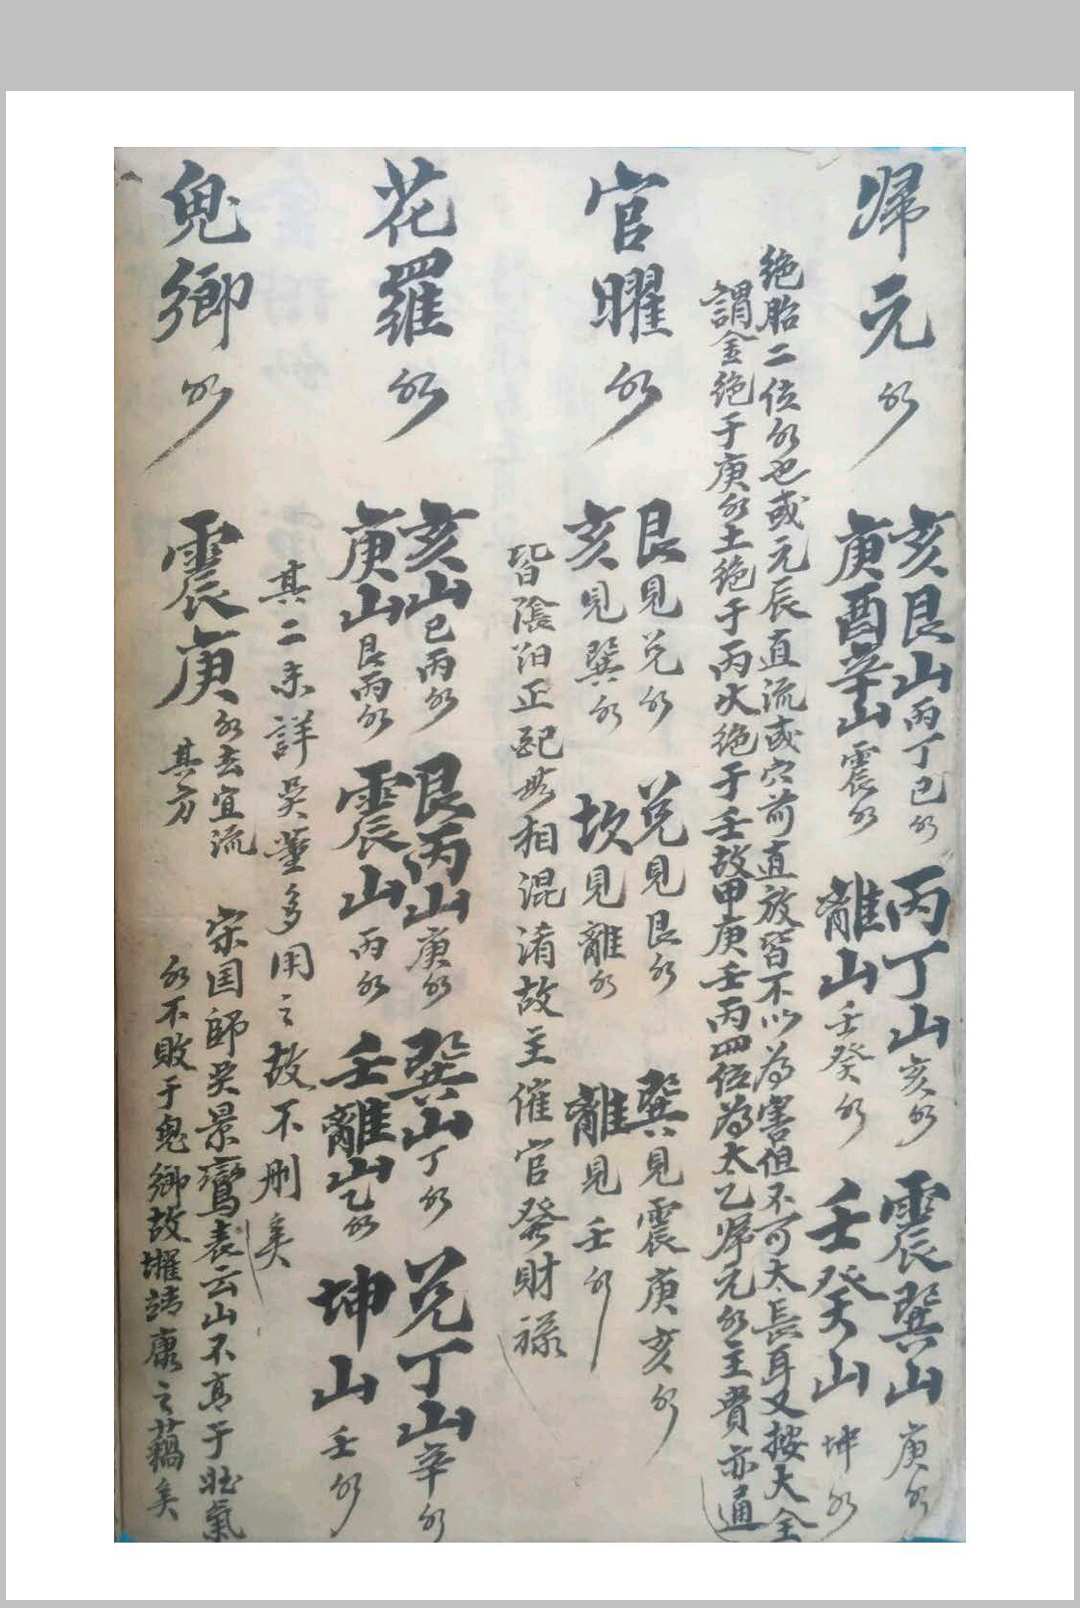 歸元水
亥艮山丙丁巳水　丙丁山亥水　震巽山庚水
庚酉辛山震水　離山壬癸水　壬癸山坤水
絶胎二位水也或元辰直流或穴前直放皆不以為害但不可太長耳又按大全
謂金絶于庚水土絶于丙火絶于壬故甲庚壬丙四位為太乙歸元水主貴亦通
官曜水
艮見兌水　兌見艮水　巽見震庚亥水
亥見巽水　坎見離水　離見壬水
皆陰阳正配無相混淆故主催官發財祿
花羅水
亥山巳丙水　艮丙山庚水　巽山丁水　兌丁山辛水
庚山艮丙水　震山丙水　壬離山乙水　坤山壬水
其二未詳吳董多用之故不刪矣
鬼鄉水
震庚水去宜流　宋国師吳景鸞表云山不高于旺氣
其方　水不敗于鬼鄉故　靖康之禍矣